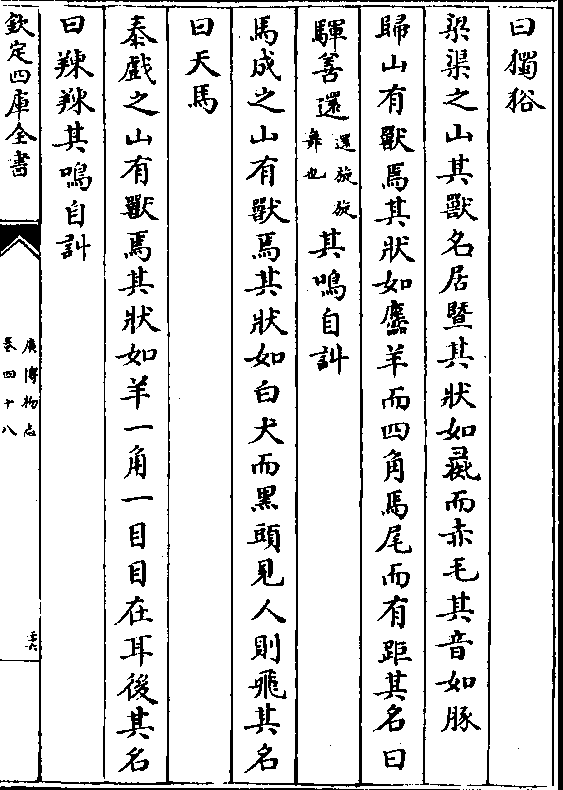 曰獨𤞞
梁渠之山其獸名居暨其狀如彙而赤毛其音如豚
歸山有獸焉其狀如麢羊而四角馬尾而有距其名曰
驒善還還旋旋舞也其鳴自訆
馬成之山有獸焉其狀如白犬而黑頭見人則飛其名
曰天馬
泰戲之山有獸焉其狀如羊一角一目目在耳後其名
曰䍶䍶其鳴自訆
欽定四庫全書
廣博物志
卷四十八